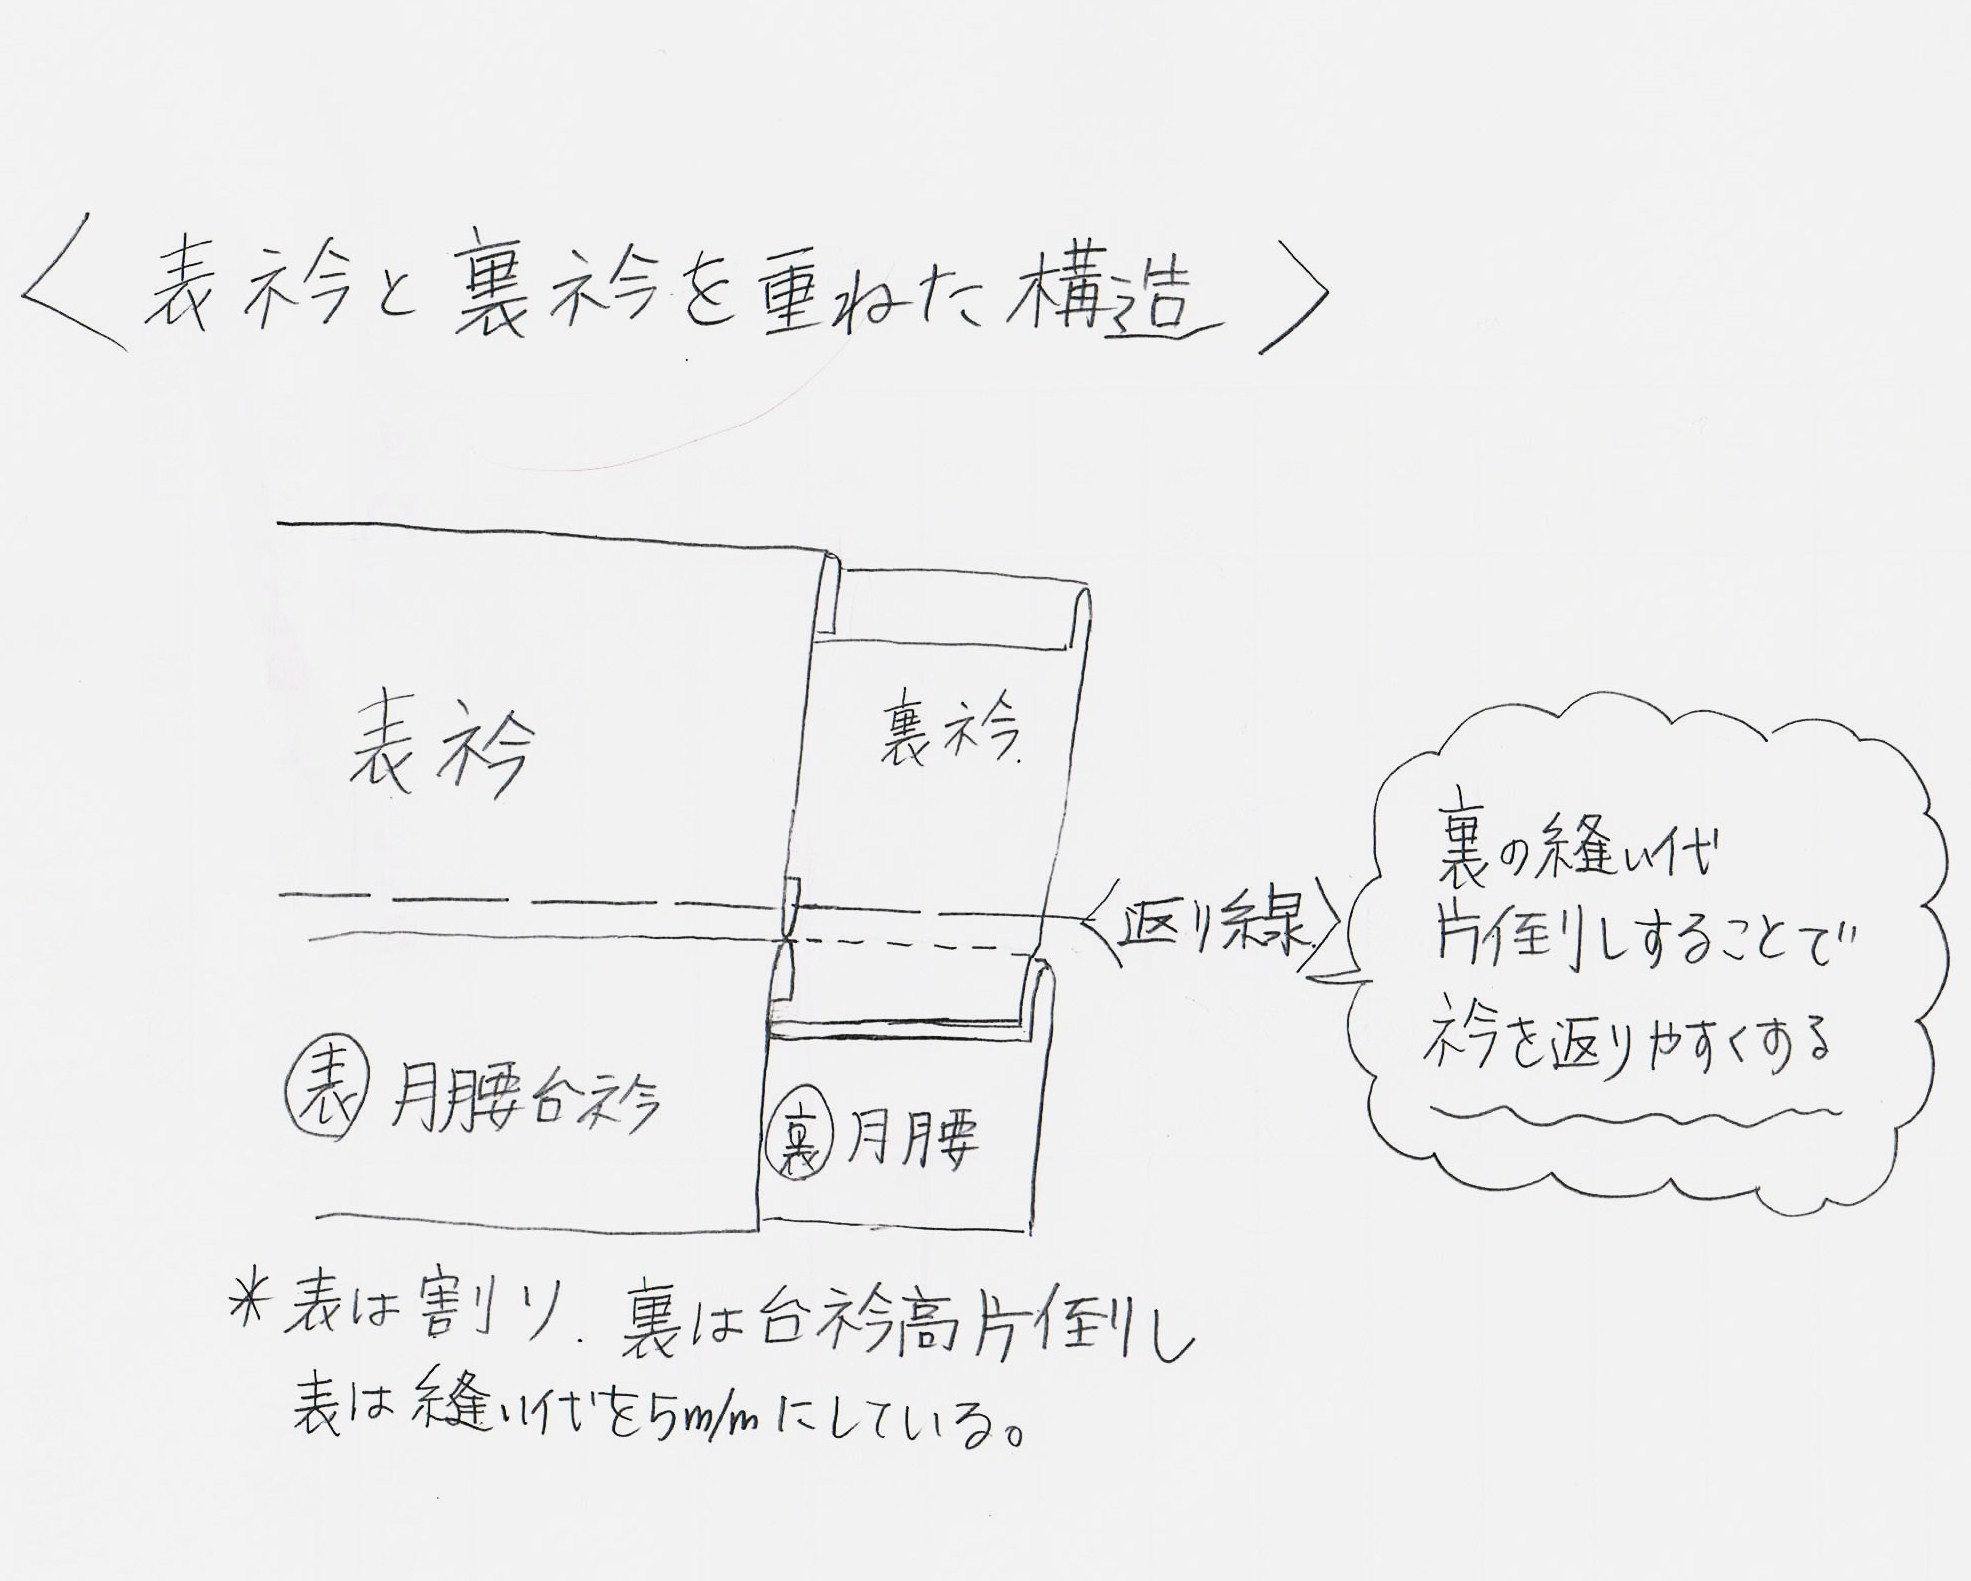 〈表衿と裏衿を重ねた構造〉
表衿
裏衿
〈返り線〉
裏の縫い代
片倒しすることで
衿を返りやすくする
㊤表 月腰台衿
裏 月腰
*表は割り、裏は台衿高片倒し
表は縫い代を5m/mにしている。